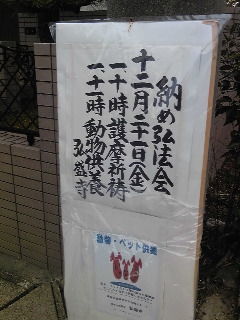 納め弘法会
十二月二十一日(金)
一、十時護摩祈祷
一、十一時動物供養
弘盛寺
動物・ペット供養